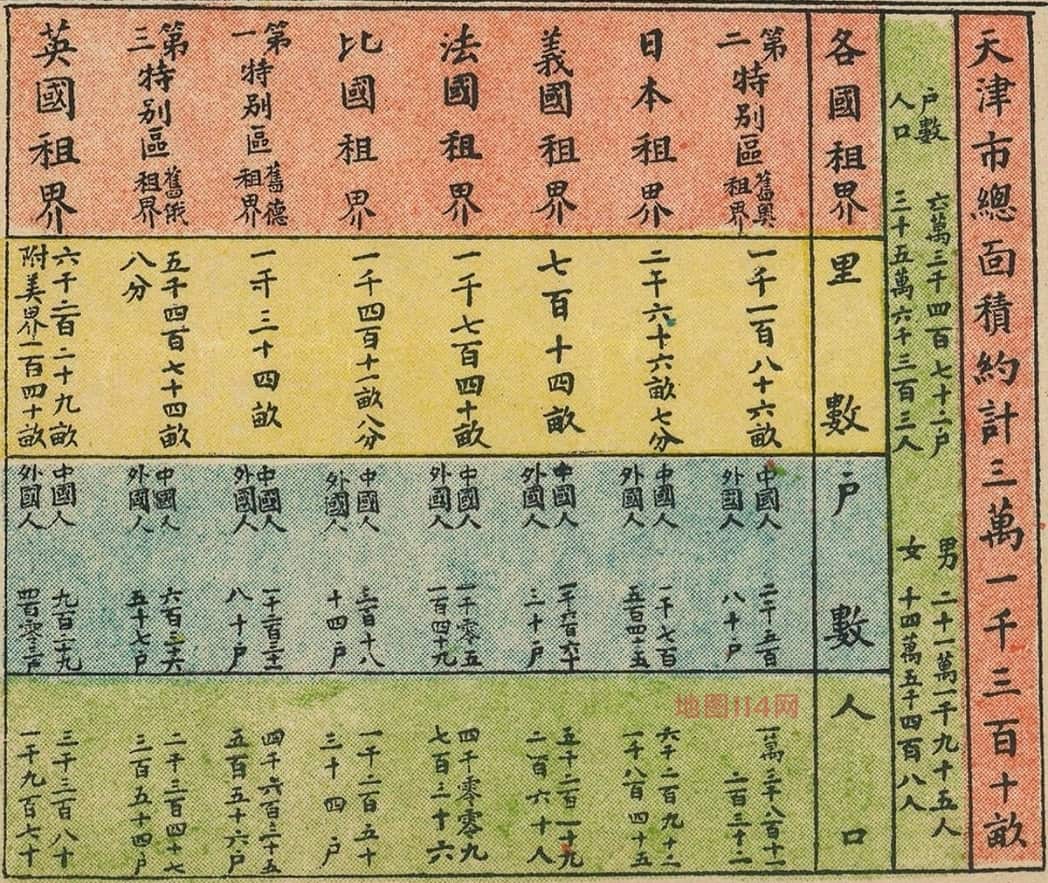 天津市總面積約計三萬一千三百十畝
户數 六萬三千四百七十二户 男 二十一萬一千九十五人
人口 三十五萬六千三百三人 女 十四萬五千四百八人
各國租界
里數
户數
人口
第二特別區舊奧租界
一千一百八十六畝
中國人 二千五百
外國人 八十户
一萬二千八百十一
二百三十二
日本租界
二千六十六畝七分
中國人 一千七百
外國人 五百四十五
六千二百九十二
一千八百四十五
義國租界
七百十四畝
中國人 一千六百六十
外國人 三十户
五千二百一十九
二百六十人
法國租界
一千七百四十畝
中國人 一千零五
外國人 一百四十九
四千零零九
七百三十六
比國租界
一千四百十一畝八分
中國人 三百十八
外國人 十四户
一千二百五十
三十四户
第一特別區舊德租界
一千三十四畝
中國人 一千二百三十三
外國人 八十户
四千六百三十五
五百五十六户
第三特別區舊俄租界
五千四百七十四畝八分
中國人 六百三十六
外國人 五十七户
二千三百四十七
三百五十四户
英國租界
六千二百二十九畝
附美界一百四十畝
中國人 九百二十九
外國人 四百零三户
三千三百八十
一千九百七十
地图114网